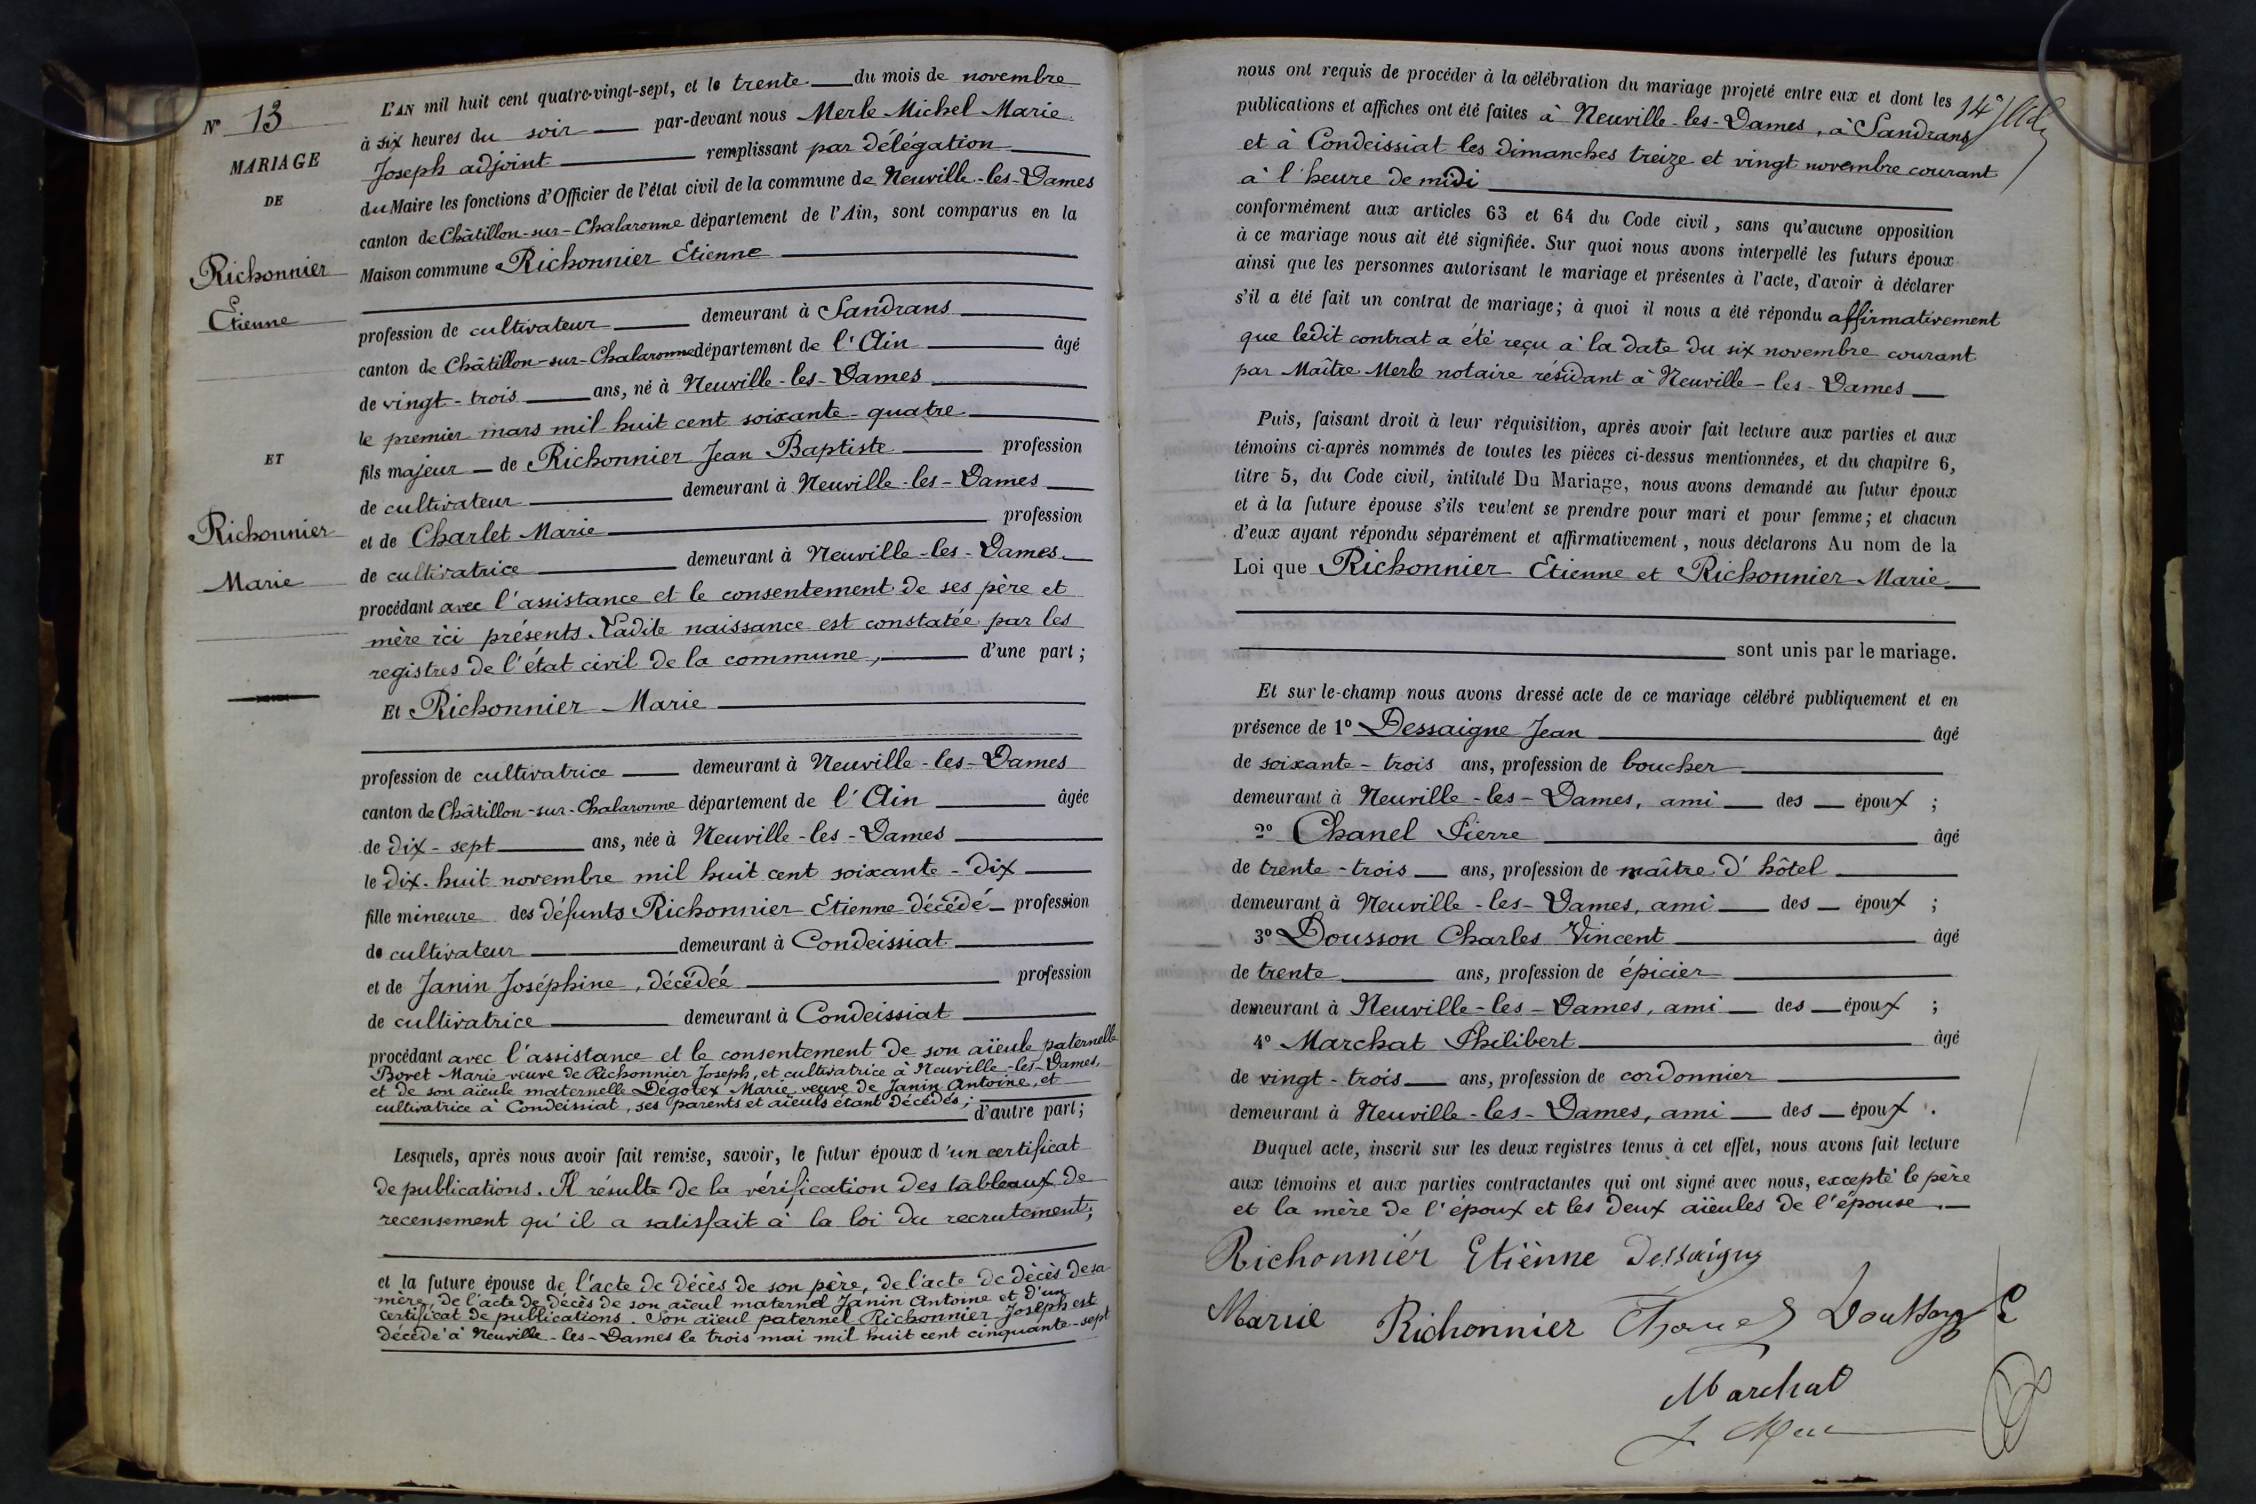 N° 13
MARIAGE
DE
Richonnier
Etienne
ET
Richonnier
Marie
L'AN mil huit cent quatre-vingt-sept, et le trente du mois de novembre
à six heures du soir par-devant nous Merle Michel Marie
Joseph adjoint remplissant par délégation
du Maire les fonctions d'Officier de l'état civil de la commune de Neuville-les-Dames
canton de Châtillon-sur-Chalaronne département de l'Ain, sont comparus en la
Maison commune Richonnier Etienne
profession de cultivateur demeurant à Sandrans
canton de Châtillon-sur-Chalaronne département de l'Ain âgé
de vingt-trois ans, né à Neuville-les-Dames
le premier mars mil huit cent soixante-quatre
fils majeur de Richonnier Jean Baptiste profession
de cultivateur demeurant à Neuville-les-Dames
et de Charlet Marie profession
de cultivatrice demeurant à Neuville-les-Dames
procédant avec l'assistance et le consentement de ses père et
mère ici présents. Ladite naissance est constatée par les
registres de l'état civil de la commune, d'une part;
Et Richonnier Marie
profession de cultivatrice demeurant à Neuville-les-Dames
canton de Châtillon-sur-Chalaronne département de l'Ain âgée
de dix-sept ans, née à Neuville-les-Dames
le dix-huit novembre mil huit cent soixante-dix
fille mineure des défunts Richonnier Etienne décédé profession
de cultivateur demeurant à Condeissiat
et de Janin Joséphine, décédée profession
de cultivatrice demeurant à Condeissiat
procédant avec l'assistance et le consentement de son aïeule paternelle
Bovet Marie veuve de Richonnier Joseph, et cultivatrice à Neuville-les-Dames,
et de son aïeule maternelle Dégotex Marie veuve de Janin Antoine, et
cultivatrice à Condeissiat, ses parents et aïeuls étant décédés; d'autre part;
Lesquels, après nous avoir fait remise, savoir, le futur époux d'un certificat
de publications. Il résulte de la vérification des tableaux de
recensement qu'il a satisfait à la loi du recrutement;
et la future épouse de l'acte de décès de son père, de l'acte de décès de sa
mère, de l'acte de décès de son aïeul maternel Janin Antoine et d'un
certificat de publications. Son aïeul paternel Richonnier Joseph est
décédé à Neuville-les-Dames le trois mai mil huit cent cinquante-sept
nous ont requis de procéder à la célébration du mariage projeté entre eux et dont les
publications et affiches ont été faites à Neuville-les-Dames, à Sandrans
et à Condeissiat les dimanches treize et vingt novembre courant
à l'heure de midi
conformément aux articles 63 et 64 du Code civil, sans qu'aucune opposition
à ce mariage nous ait été signifiée. Sur quoi nous avons interpellé les futurs époux
ainsi que les personnes autorisant le mariage et présentes à l'acte, d'avoir à déclarer
s'il a été fait un contrat de mariage; à quoi il nous a été répondu affirmativement
que ledit contrat a été reçu à la date du six novembre courant
par Maître Merle notaire résidant à Neuville-les-Dames
Puis, faisant droit à leur réquisition, après avoir fait lecture aux parties et aux
témoins ci-après nommés de toutes les pièces ci-dessus mentionnées, et du chapitre 6,
titre 5, du Code civil, intitulé Du Mariage, nous avons demandé au futur époux
et à la future épouse s'ils veulent se prendre pour mari et pour femme; et chacun
d'eux ayant répondu séparément et affirmativement, nous déclarons Au nom de la
Loi que Richonnier Etienne et Richonnier Marie
sont unis par le mariage.
Et sur-le-champ nous avons dressé acte de ce mariage célébré publiquement et en
présence de 1° Dessaigne Jean âgé
de soixante-trois ans, profession de boucher
demeurant à Neuville-les-Dames, ami des époux;
2° Chanel Pierre âgé
de trente-trois ans, profession de maître d'hôtel
demeurant à Neuville-les-Dames, ami des époux;
3° Dousson Charles Vincent âgé
de trente ans, profession de épicier
demeurant à Neuville-les-Dames, ami des époux;
4° Marchat Philibert âgé
de vingt-trois ans, profession de cordonnier
demeurant à Neuville-les-Dames, ami des époux.
Duquel acte, inscrit sur les deux registres tenus à cet effet, nous avons fait lecture
aux témoins et aux parties contractantes qui ont signé avec nous, excepté le père
et la mère de l'époux et les deux aïeules de l'épouse.
Richonniér Etiènne Dessaigne
Mariie Richonnier Chanel Dousson
Marchat